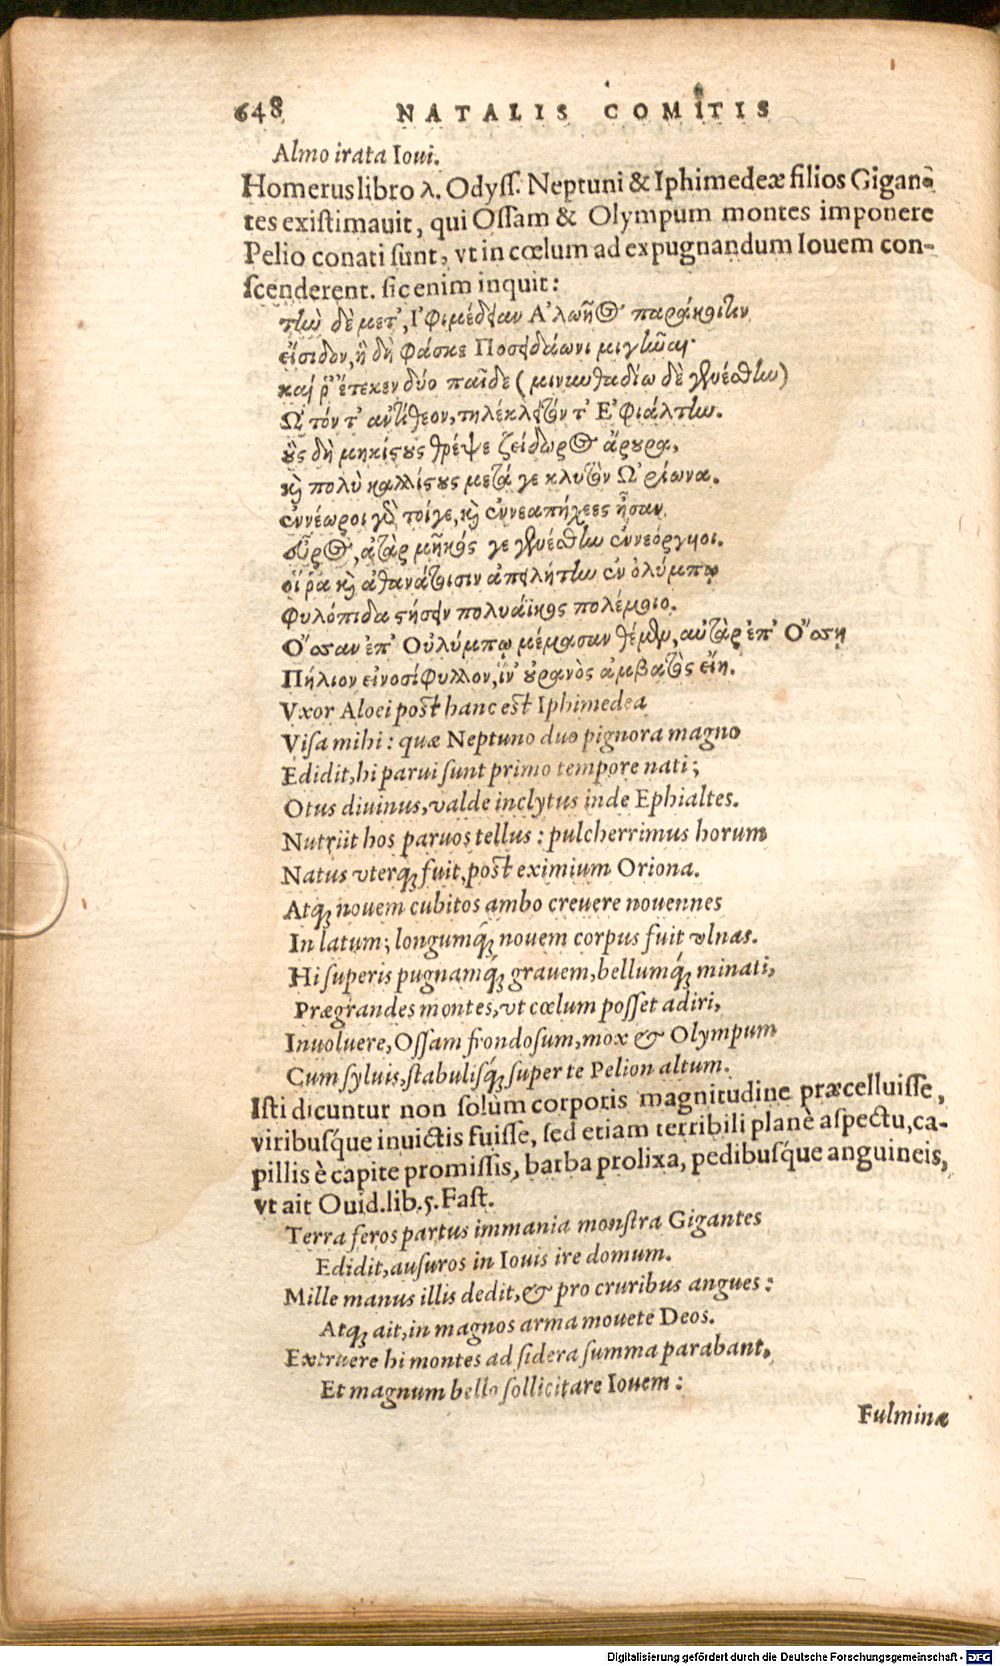 648 NATALIS COMITIS
Almo irata Ioui.
Homerus libro λ. Odyss. Neptuni & Iphimedeæ filios Gigan-
tes existimauit, qui Ossam & Olympum montes imponere
Pelio conati sunt, vt in cœlum ad expugnandum Iouem con-
scenderent. sic enim inquit:
τὴν δὲ μετ', Ἰφιμέδειαν Ἀλωῆος παράκοιτιν
εἴσιδον, ἣ δὴ φάσκε Ποσειδάωνι μιγῆναι·
καί ῥ' ἔτεκεν δύο παῖδε (μινυνθαδίω δὲ γενέσθην)
Ὦτόν τ' ἀντίθεον, τηλεκλειτόν τ' Ἐφιάλτην.
οὓς δὴ μηκίστους θρέψε ζείδωρος ἄρουρα,
καὶ πολὺ καλλίστους μετά γε κλυτὸν Ὠρίωνα.
ἐννέωροι γὰρ τοίγε, καὶ ἐννεαπήχεες ἦσαν
εὖρος, ἀτὰρ μῆκός γε γενέσθην ἐννεόργυοι.
οἵ ῥα καὶ ἀθανάτοισιν ἀπειλήτην ἐν ὀλύμπῳ
φυλόπιδα στήσειν πολυάϊκος πολέμοιο.
Ὄσσαν ἐπ' Οὐλύμπῳ μέμασαν θέμεν, αὐτὰρ ἐπ' Ὄσσῃ
Πήλιον εἰνοσίφυλλον, ἵν' οὐρανὸς ἀμβατὸς εἴη.
Vxor Aloei post hanc est Iphimedea
Visa mihi: quæ Neptuno duo pignora magno
Edidit, hi parui sunt primo tempore nati;
Otus diuinus, valde inclytus inde Ephialtes.
Nutriit hos paruos tellus: pulcherrimus horum
Natus vterq; fuit, post eximium Oriona.
Atq; nouem cubitos ambo creuere nouennes
In latum; longumq́; nouem corpus fuit vlnas.
Hi superis pugnamq́; grauem, bellumq́; minati,
Prægrandes montes, vt cœlum posset adiri,
Inuoluere, Ossam frondosum, mox & Olympum
Cum syluis, stabulisq́; super te Pelion altum.
Isti dicuntur non solùm corporis magnitudine præcelluisse,
viribusq́ue inuictis fuisse, sed etiam terribili planè aspectu, ca-
pillis è capite promissis, barba prolixa, pedibusq́ue anguineis,
vt ait Ouid. lib. 5. Fast.
Terra feros partus immania monstra Gigantes
Edidit, ausuros in Iouis ire domum.
Mille manus illis dedit, & pro cruribus angues:
Atq; ait, in magnos arma mouete Deos.
Extruere hi montes ad sidera summa parabant,
Et magnum bello sollicitare Iouem:
Fulminæ
Digitalisierung gefördert durch die Deutsche Forschungsgemeinschaft - DFG